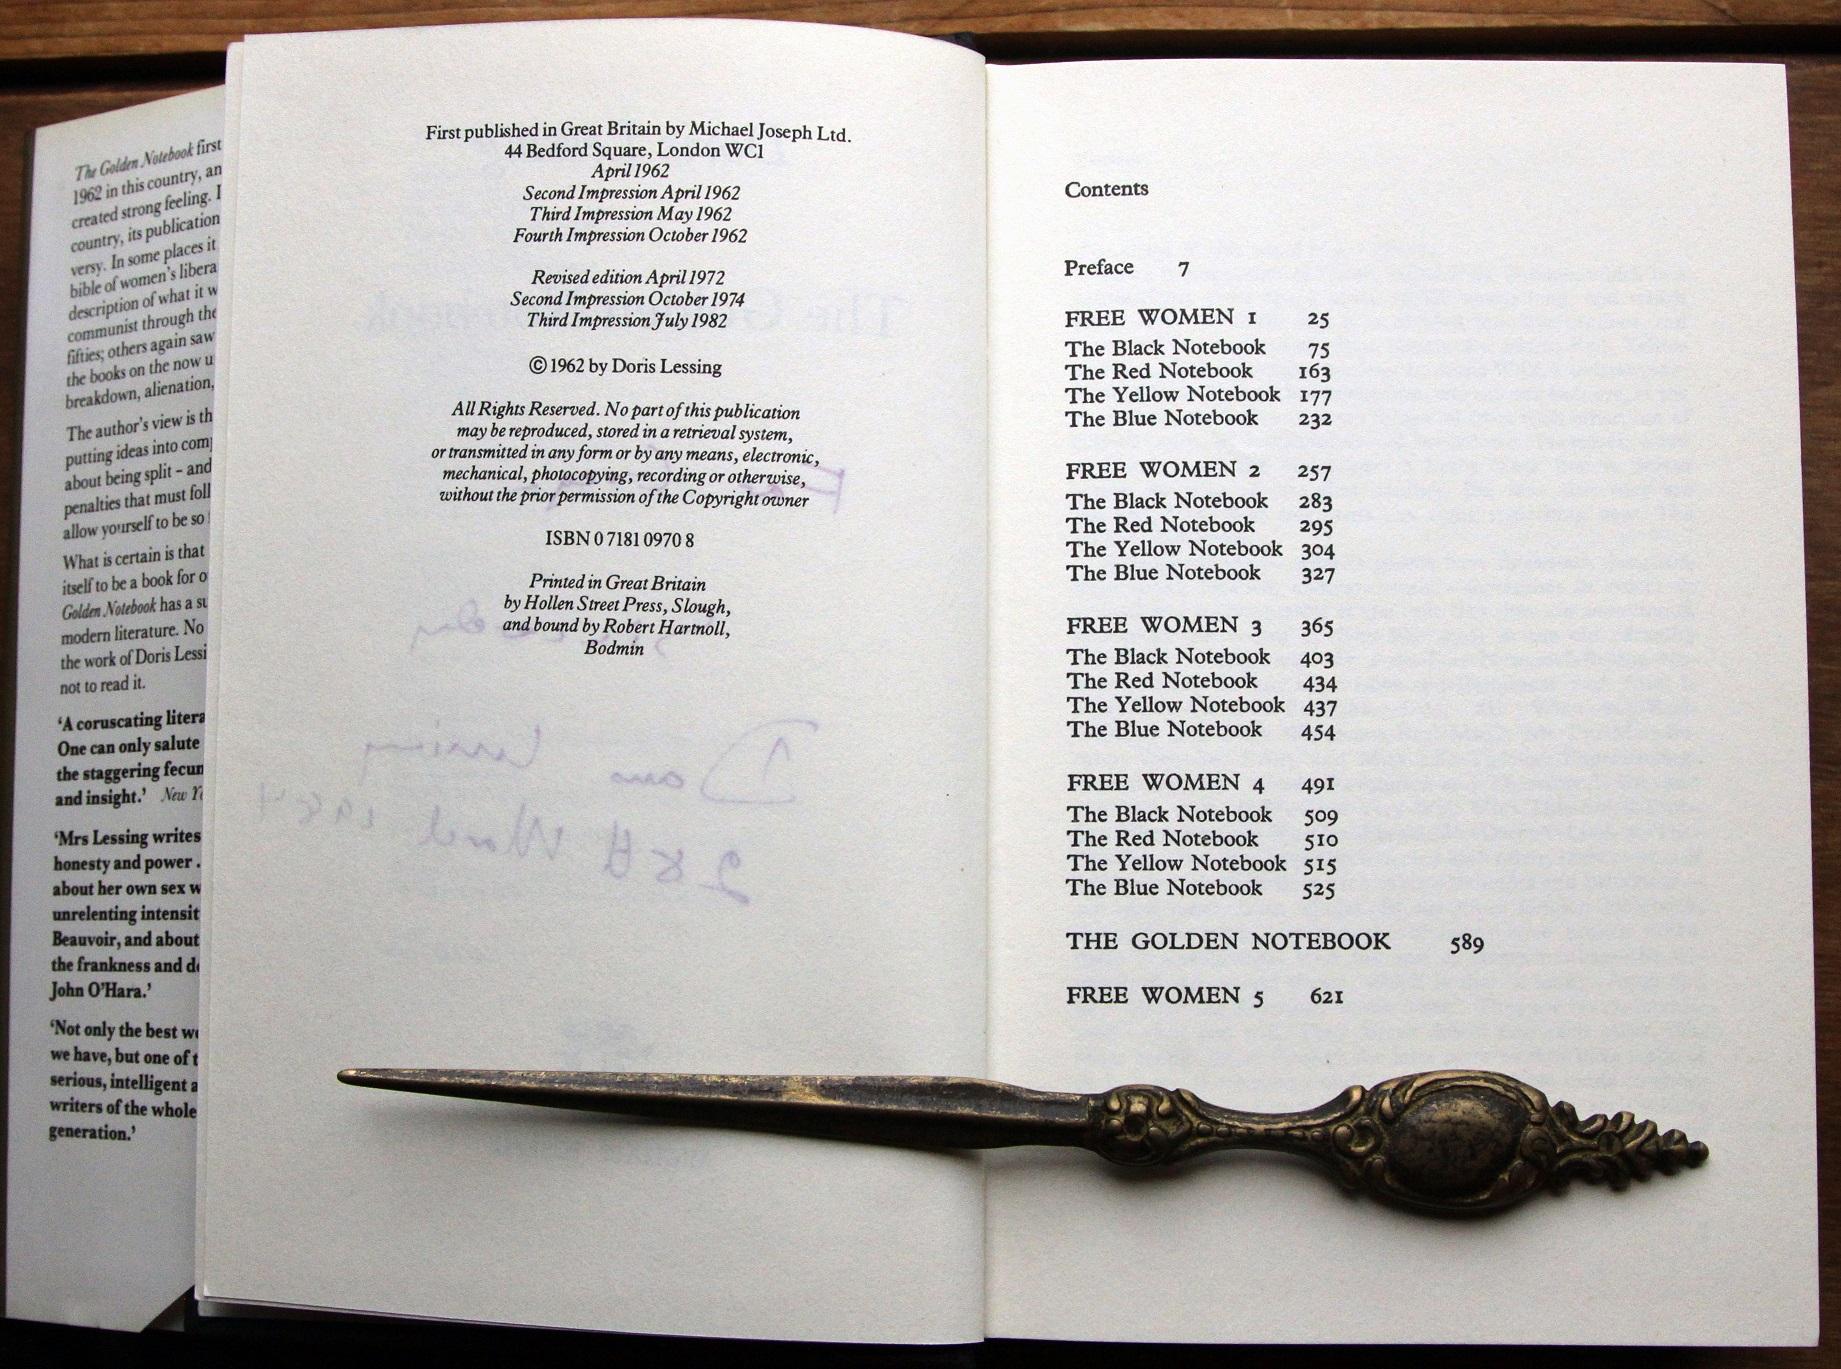 The Golden Notebook first
1962 in this country, an
created strong feeling. I
country, its publication
versy. In some places it
bible of women's libera
description of what it w
communist through the
fifties; others again saw
the books on the now u
breakdown, alienation,
The author's view is th
putting ideas into comp
about being split – and
penalties that must foll
allow yourself to be so
What is certain is that
itself to be a book for o
Golden Notebook has a su
modern literature. No
the work of Doris Lessi
not to read it.
'A coruscating litera
One can only salute
the staggering fecun
and insight.' New Yo
'Mrs Lessing writes
honesty and power .
about her own sex w
unrelenting intensit
Beauvoir, and about
the frankness and de
John O'Hara.'
'Not only the best wo
we have, but one of t
serious, intelligent a
writers of the whole
generation.'
First published in Great Britain by Michael Joseph Ltd.
44 Bedford Square, London WC1
April 1962
Second Impression April 1962
Third Impression May 1962
Fourth Impression October 1962
Revised edition April 1972
Second Impression October 1974
Third Impression July 1982
© 1962 by Doris Lessing
All Rights Reserved. No part of this publication
may be reproduced, stored in a retrieval system,
or transmitted in any form or by any means, electronic,
mechanical, photocopying, recording or otherwise,
without the prior permission of the Copyright owner
ISBN 0 7181 0970 8
Printed in Great Britain
by Hollen Street Press, Slough,
and bound by Robert Hartnoll,
Bodmin
Doris Lessing
28th March 1984
Contents
Preface 7
FREE WOMEN 1 25
The Black Notebook 75
The Red Notebook 163
The Yellow Notebook 177
The Blue Notebook 232
FREE WOMEN 2 257
The Black Notebook 283
The Red Notebook 295
The Yellow Notebook 304
The Blue Notebook 327
FREE WOMEN 3 365
The Black Notebook 403
The Red Notebook 434
The Yellow Notebook 437
The Blue Notebook 454
FREE WOMEN 4 491
The Black Notebook 509
The Red Notebook 510
The Yellow Notebook 515
The Blue Notebook 525
THE GOLDEN NOTEBOOK 589
FREE WOMEN 5 621